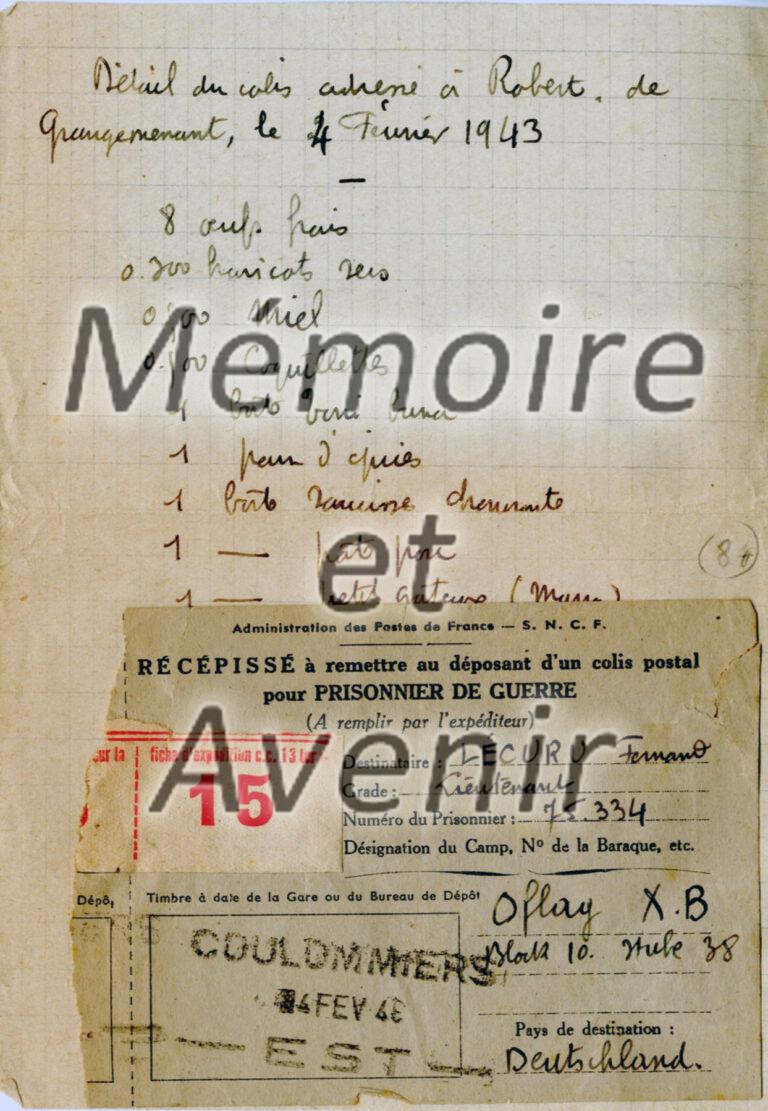 Détail du colis adressé à Robert. de
Grangemenant, le 4 Février 1943
8 œufs frais
0.300 haricots secs
0.500 Miel
0.500 Coquillettes
1 boîte
1 pain d'épices
1 boîte saucisses choucroute
1 — pâté porc
1 — petits gâteaux (Mam.)
(8f)
Mémoire
et
Avenir
Administration des Postes de France — S. N. C. F.
RÉCÉPISSÉ à remettre au déposant d'un colis postal
pour PRISONNIER DE GUERRE
(A remplir par l'expéditeur)
sur la
fiche d'expédition c.c. 13 ter
15
Destinataire : LÉCURU Fernand
Grade : Lieutenant
Numéro du Prisonnier : 75.334
Désignation du Camp, No de la Baraque, etc.
Oflag X.B
Block 10. Stube 38
Pays de destination :
Deutschland.
Dépôt,
Timbre à date de la Gare ou du Bureau de Dépôt
COULOMMIERS
4 FEV 43
— EST —